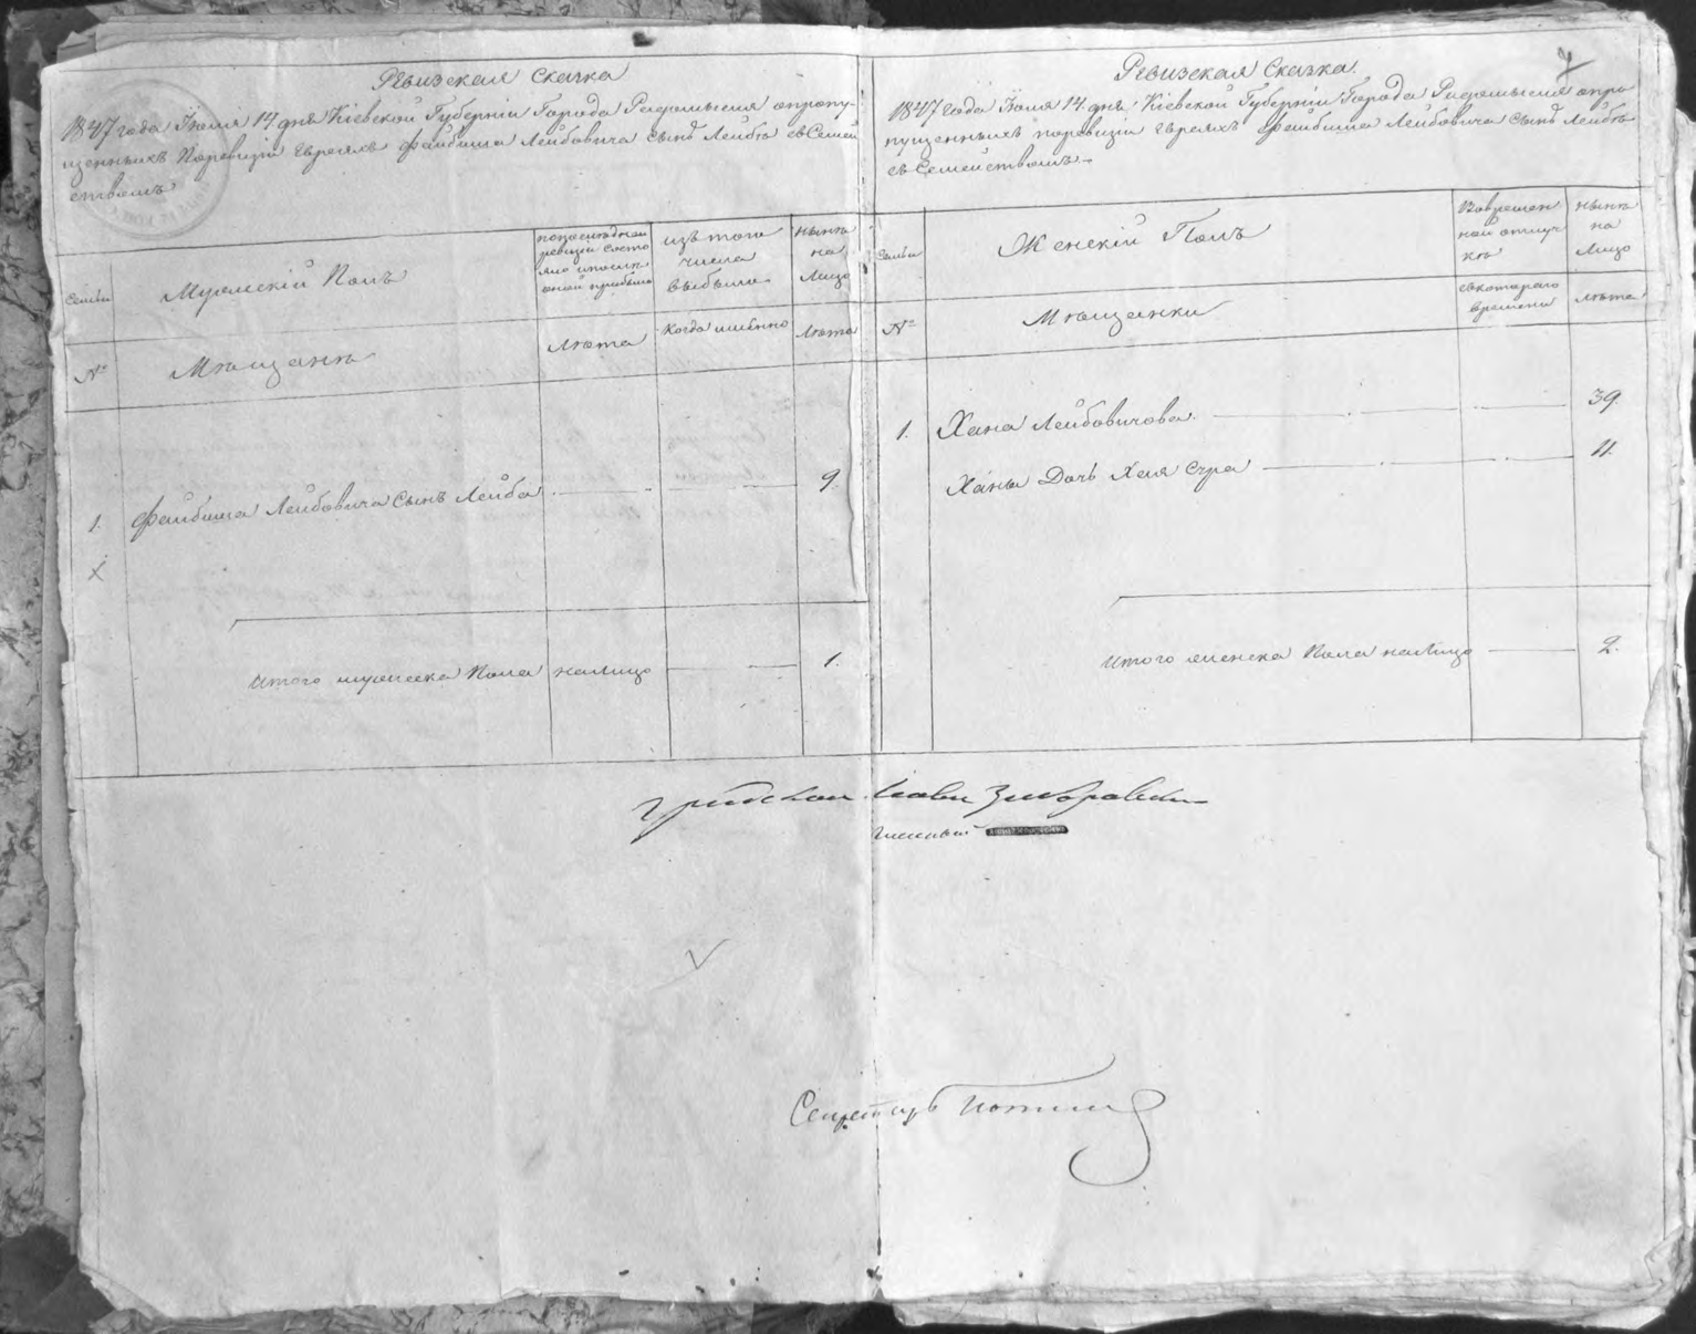 Ревизская Сказка
1847 года Іюля 14 дня Кіевской Губерніи Города Радомысля опропу-
щенныхъ поревизіи Евреяхъ Файбиша Лейбовича Сынѣ Лейбѣ съСемей
ствомъ
Семьи
Мужескій Полъ
попоследней
ревизіи состо
яло ипосли
оной прибыло
изъ того
числа
выбыло
нынѣ
на
Лицо
№
Мѣщанѣ
Лѣта
когда имянно
Лѣта
1. Файбиша Лейбовича Сынъ Лейба 9.
Итого мужеска Пола налицо 1.
Ревизская Сказка.
1847 года Іюля 14. дня Кіевской Губерніи Города Радомысля опро
пущенныхъ поревизіи Евреяхъ Файбиша Лейбовича Сынѣ Лейбѣ
съСемействомъ.
Семьи
Женскій Полъ
Вовремен
ной отлуч
кѣ
нынѣ
на
Лицо
№
Мѣщанки
скотораго
времени
Лѣта
1. Хана Лейбовичова 39.
Ханы Дочь Хая Сура 11.
Итого женска Пола налицо 2.
Секретарь